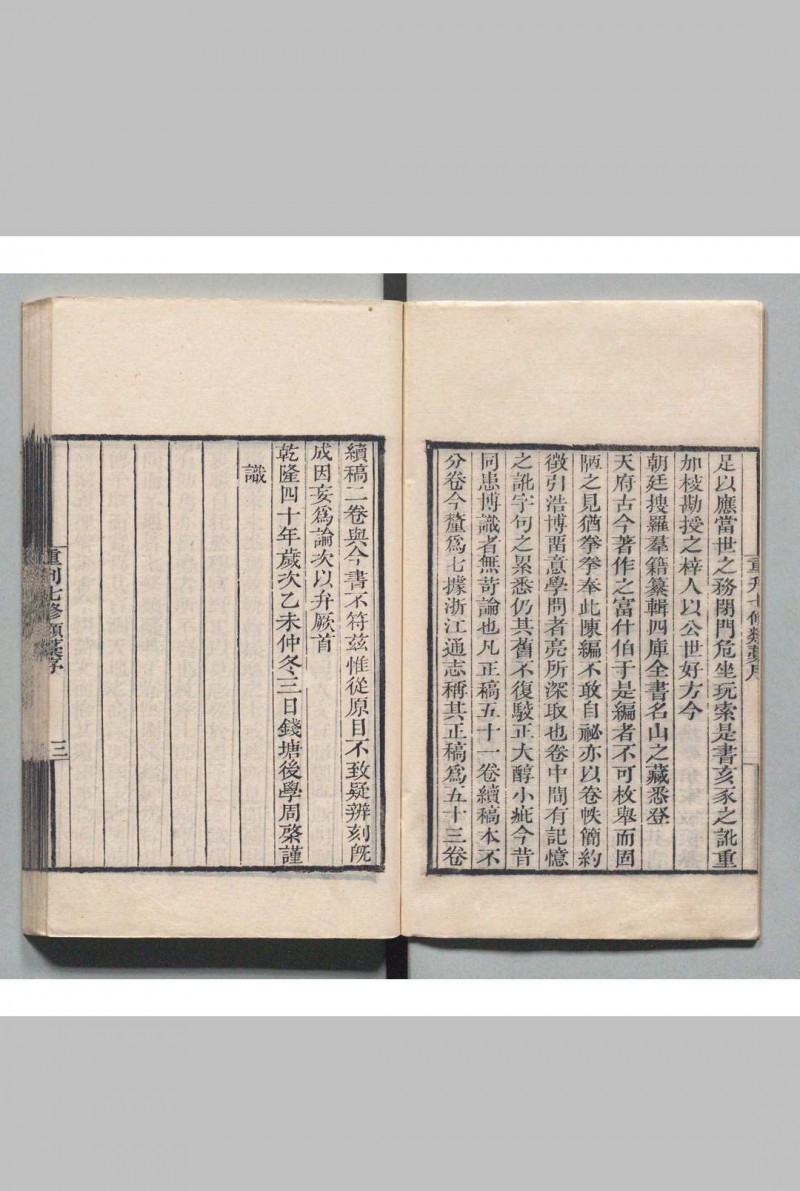 足以應當世之務閉門危坐玩索是書亥豕之訛重
加校勘授之梓人以公世好方今
朝廷搜羅羣籍纂輯四庫全書名山之藏悉登
天府古今著作之富什伯于是編者不可枚舉而固
陋之見猶拳拳奉此陳編不敢自祕亦以卷帙簡約
徵引浩博畱意學問者亮所深取也卷中間有記憶
之訛字句之累悉仍其舊不復駮正大醇小疵今昔
同患博識者無苛論也凡正稿五十一卷續稿本不
分卷今釐爲七據浙江通志稱其正稿爲五十三卷
續稿二卷與今書不符茲惟從原目不致疑辨刻旣
成因妄爲論次以弁厥首
乾隆四十年歲次乙未仲冬三日錢塘後學周棨謹
識
重刊七修類藁序
三